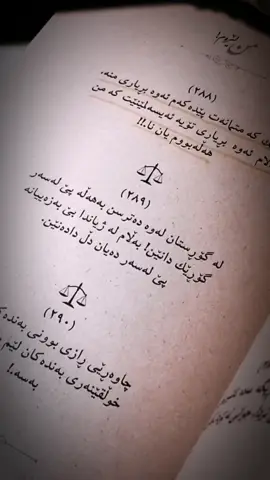 من لێرەم!
(٢٨٨)
کە متمانەت پێدەکەم ئەوە بڕیاری منە.
ئەوە بڕیاری تۆیە ئەیسەلمێنیت کە من
هەڵەبووم یان نا.!!
(٢٨٩)
لە گۆڕستان لەوە دەترسن بەهەڵە پێ لەسەر
گۆڕێك دانێن! بەڵام لە ژیاندا بێ بەزەییانە
پێ لەسەر دەیان دڵ دادەنێن.
(٢٩٠)
چاوەڕێی ڕازی بوونی بەندە
خوڵقێنەری بەندەکان لێم
بەسە.!